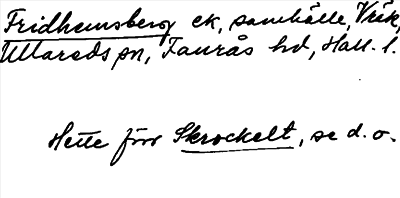 Fridhemsberg ek, samhälle, Vrik,
Ullareds sn, Faurås hd, Hall. l.
Hette förr Skrockelt, se d. o.